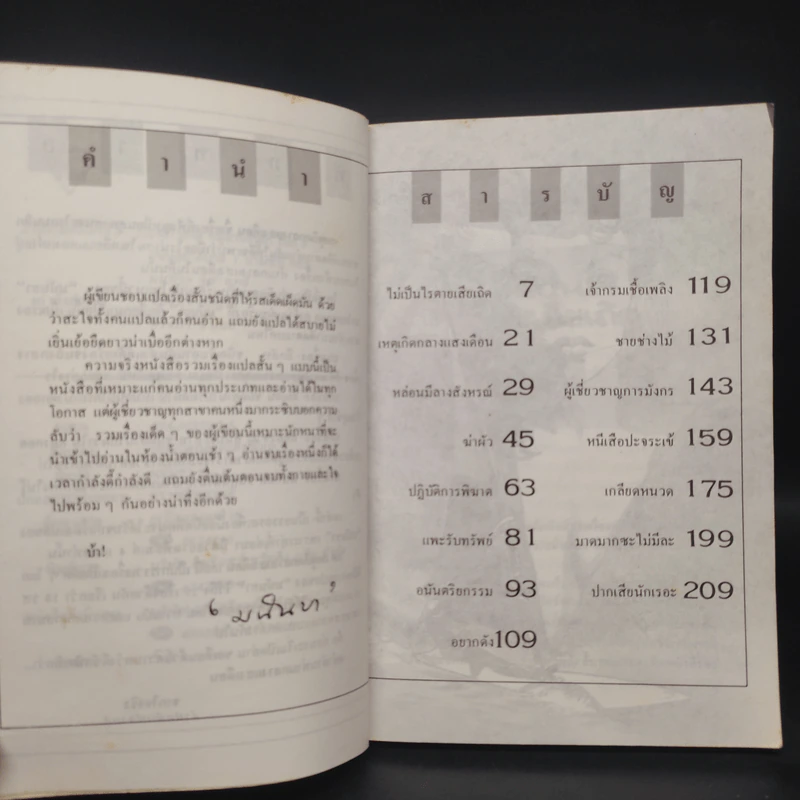 คำนำ
ผู้เขียนชอบแปลเรื่องสั้นชนิดที่ให้รสเด็ดเผ็ดมัน ด้วย
ว่าสะใจทั้งคนแปลแล้วก็คนอ่าน แถมยังแปลได้สบายไม่
เยิ่นเย้อยืดยาวน่าเบื่ออีกต่างหาก
ความจริงหนังสือรวมเรื่องแปลสั้น ๆ แบบนี้เป็น
หนังสือที่เหมาะแก่คนอ่านทุกประเภทและอ่านได้ในทุก
โอกาส แต่ผู้เชี่ยวชาญทุกสาขาคนหนึ่งมากระซิบบอกความ
ลับว่า รวมเรื่องเด็ด ๆ ของผู้เขียนนี้เหมาะนักหนาที่จะ
นำเข้าไปอ่านในห้องน้ำตอนเช้า ๆ อ่านจบเรื่องหนึ่งก็ได้
เวลากำลังดี้กำลังดี แถมยังตื่นเต้นตอนจบทั้งกายและใจ
ไปพร้อม ๆ กันอย่างน่าทึ่งอีกด้วย
บ้า!
สารบัญ
ไม่เป็นไรตายเสียเถิด 7
เหตุเกิดกลางแสงเดือน 21
หล่อนมีลางสังหรณ์ 29
ฆ่าผัว 45
ปฏิบัติการพิฆาต 63
แพะรับทรัพย์ 81
อนันตริยกรรม 93
อยากดัง 109
เจ้ากรมเชื้อเพลิง 119
ชายช่างไม้ 131
ผู้เชี่ยวชาญการมังกร 143
หนีเสือปะจระเข้ 159
เกลียดหนวด 175
มาดมากซะไม่มีละ 199
ปากเสียนักเรอะ 209